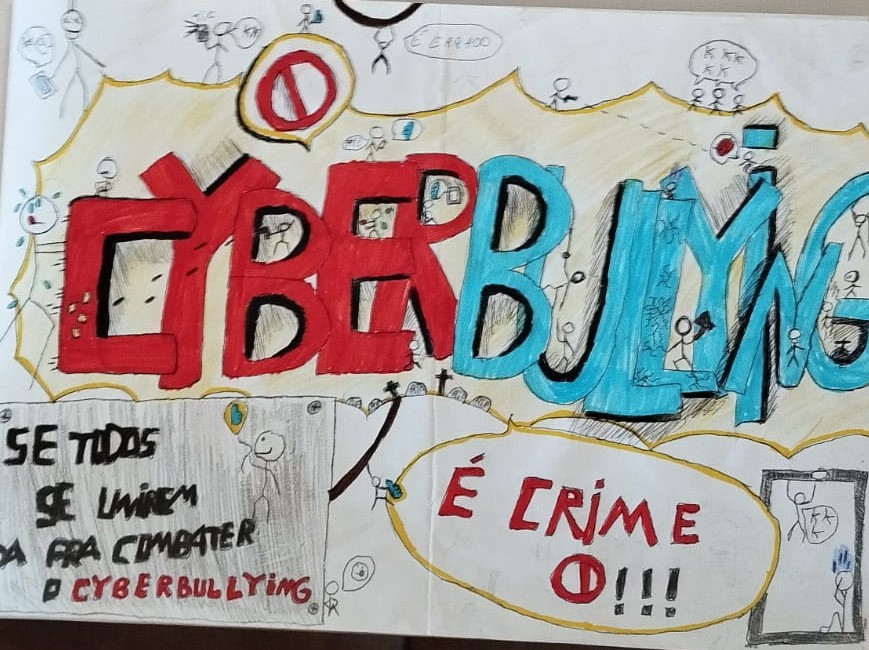 É ERRADO
K KK
K K
CYBERBULLYING
SE TODOS
SE UNIREM
DA PRA COMBATER
O CYBERBULLYING
É CRIME
!!!
K K
K